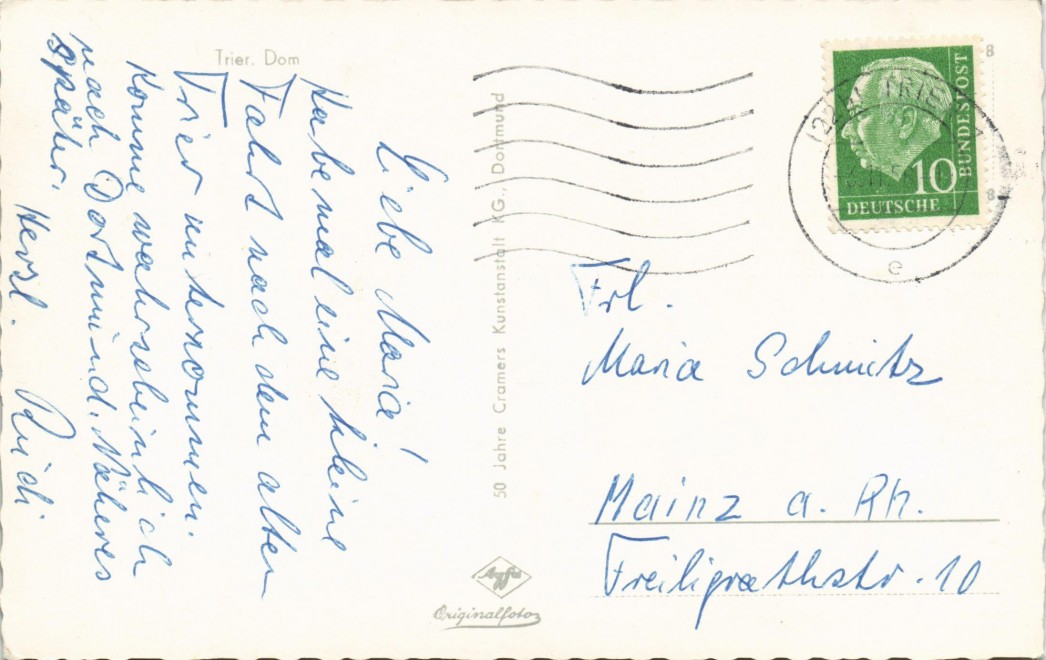 Trier. Dom
Liebe Maria!
Habe mal eine kleine
Fahrt nach dem alten
Trier unternommen.
Komme wahrscheinlich
nach Dortmund. Näheres
später.
Herzl. Rudi
50 Jahre Cramers Kunstanstalt KG., Dortmund
Agfa
Originalfoto
8
BUNDESPOST
10
DEUTSCHE
8
(22b) TRIER
e
Frl.
Maria Schmitz
Mainz a. Rh.
Freiligrathstr. 10